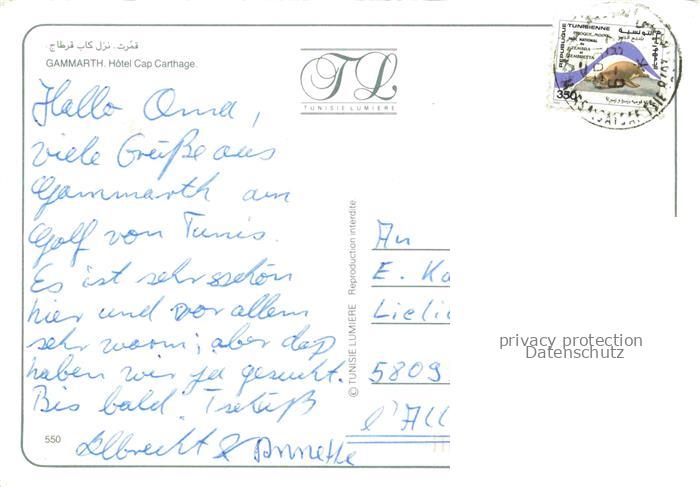 قمّرت. نزل كاب قرطاج
GAMMARTH. Hôtel Cap Carthage.
TL
TUNISIE LUMIERE
REPUBLIQUE TUNISIENNE
350
Hallo Oma,
viele Grüße aus
Gammarth am
Golf von Tunis.
Es ist sehr schön
hier und vor allem
sehr warm; aber das
haben wir ja gesucht.
Bis bald. Tschüß
Albrecht & Annette
550
© TUNISIE LUMIERE Reproduction interdite
An
E. Ka
Lieli
5809
l'All
privacy protection
Datenschutz